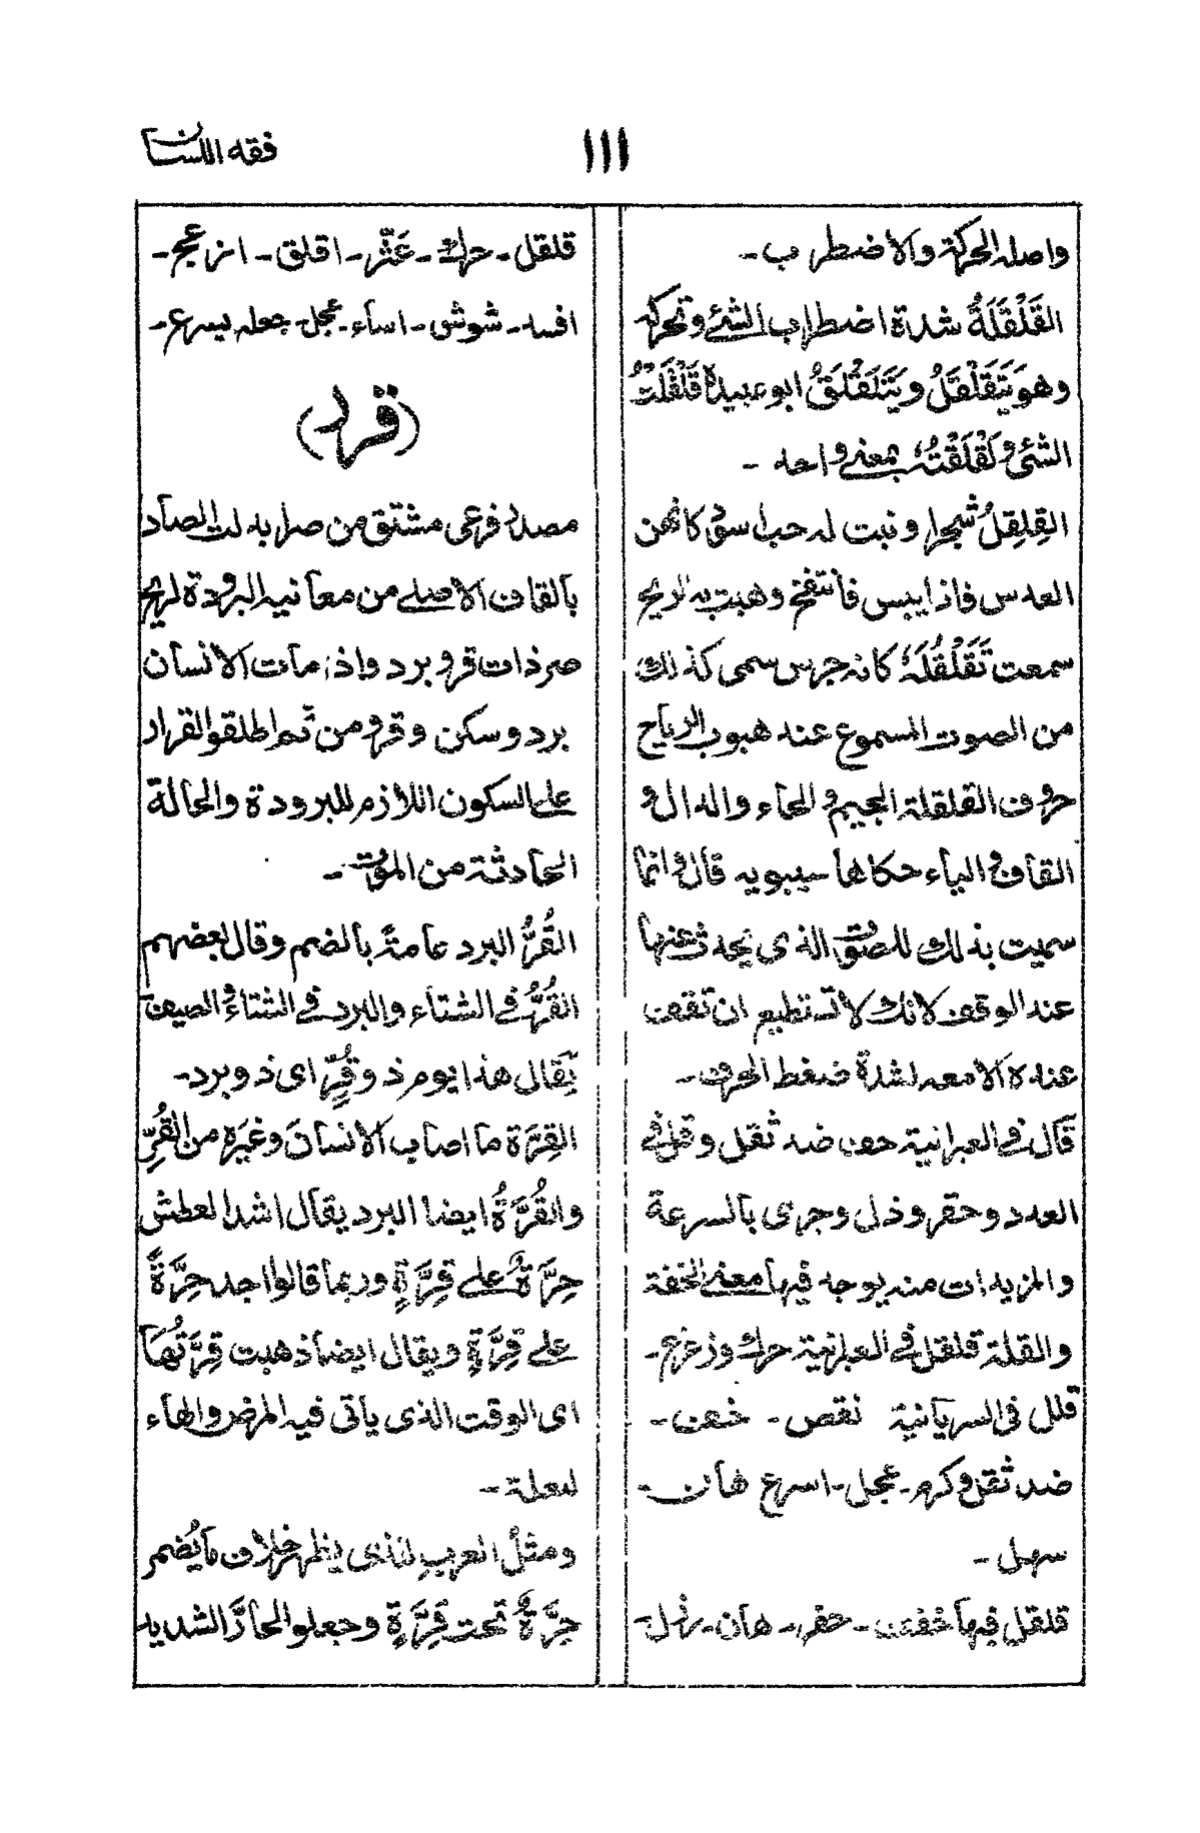 فقه اللسان
١١١
واصله الحركة والاضطراب -
القَلْقَلَةُ شدة اضطراب الشئ وتحركه
وهو يَتَقَلْقَلُ ويَتَلَقْلَقُ ابو عبيدة قَلْقَلْتُ
الشئ و لَقْلَقْتُه بمعنى واحد -
القِلقِلُ شجر او نبت له حب اسود كانهن
العدس فاذا يبس فأنتفخ وهبت به الريح
سمعت تَقَلْقُلَهٗ كانه جرس سمى كذلك
من الصوت المسموع عند هبوب الرياح
حروف القلقلة الجيم والحاء والدال و
القاف والباء حكاها سيبويه قال وانما
سميت بذلك للصوت الذى يحدث عنها
عند الوقف لانك لا تستطيع ان تقف
عنده الا معه لشدة ضغط الحرف -
قال فى العبرانية خف ضد ثقل وقل فى
العدد وحقر وذل وجرى بالسرعة
والمزيدات منه يوجد فيها معنى الخفة
والقلة قلقل فى العبرانية حرك وزعزع -
قلل فى السريانية نقص - خف -
ضد ثقل وكره - عجل - اسرع هان -
سهل -
قلقل فيها خفف - حقر - هان - رذل -
قلقل - حرك - عَثّر - اقلق - ازعج -
افسد - شوش - اساء - عجل - جعله يسرع -
(قرر)
مصدر فرعى مشتق من صر ابدلت الصاد
بالقاف الاصلى من معانيه البرودة لريح
صر ذات قر وبرد واذا مات الانسان
برد وسكن وقر ومن ثم اطلقوا القرار
على السكون اللازم للبرودة والحالة
الحادثة من الموت -
القُرُّ البرد عامةً بالضم وقال بعضهم
القُرُّ فى الشتاء والبرد فى الشتاء والصيف
يقال هذا يوم ذو قُرٍّ اى ذو برد -
القِرّة ما اصاب الانسانَ وغيرَه من القُرِّ
والقُرَّةُ ايضا البرد يقال اشد العطش
حِرَّةٌ على قِرَّةٍ وربما قالوا اجد حِرَّةً
على قِرَّةٍ ويقال ايضا ذهبت قِرَّتُها
اى الوقت الذى يأتى فيه المرض والهاء
لعلة -
ومثلُ العربِ للذى يظهر خلاف ما يُضمر
حِرَّةٌ تحت قِرَّةٍ وجعلو الحارَّ الشديد